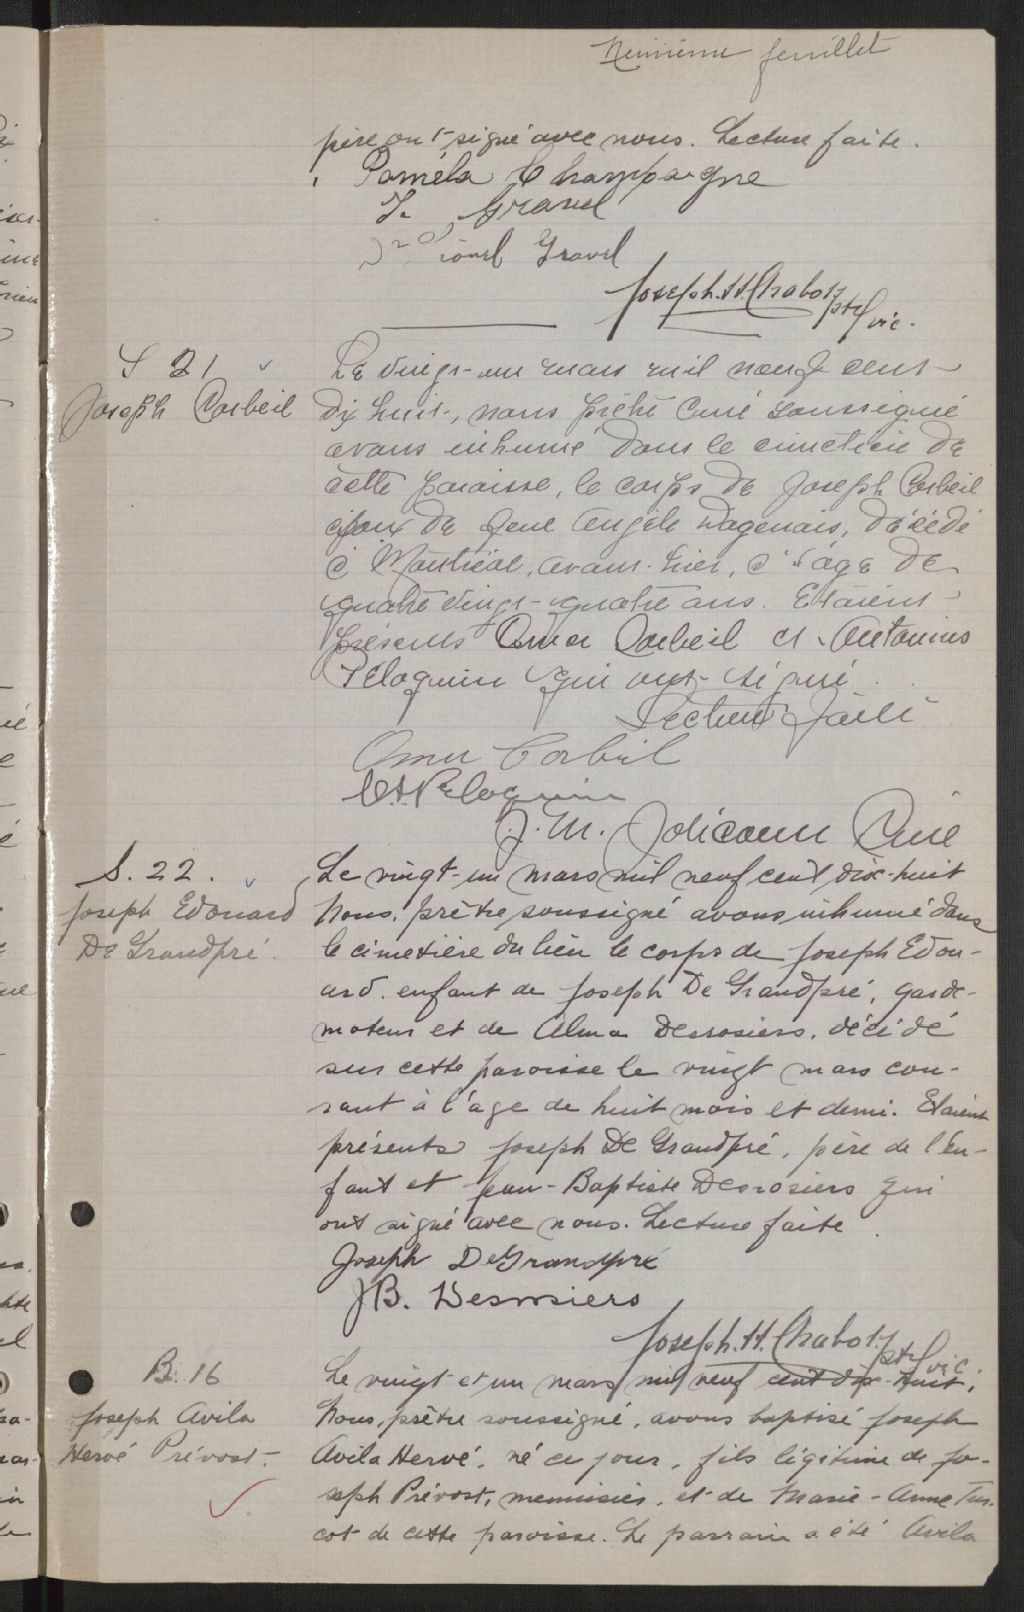 Neuvième feuillet
père ont signé avec nous. Lecture faite.
Paméla Champagne
Gravel
Lionel Gravel
Joseph. H. Chabot ptre vic.
S 21
Joseph Corbeil
Le vingt-un mars mil neuf cent
dix huit, nous prêtre Curé soussigné
avons inhumé dans le cimetière de
cette paroisse, le corps de Joseph Corbeil
époux de feue Angèle Dagenais, décédé
à Montréal, avant-hier, à l'âge de
quatre vingt-quatre ans. Etaient
présents Omer Corbeil et Antonius
Péloquin qui ont signé.
Lecture faite
Omer Corbeil
Péloquin
J. M. Jolicoeur Curé
S. 22.
Joseph Edouard
De Grandpré.
Le vingt-un mars mil neuf cent dix-huit
Nous, prêtre soussigné avons inhumé dans
le cimetière du lieu le corps de Joseph Edou-
ard. enfant de Joseph De Grandpré, garde-
moteur et de Alma Desrosiers, décédé
sur cette paroisse le vingt mars cou-
rant à l'age de huit mois et demi. Etaient
présents Joseph De Grandpré, père de l'en-
fant et Jean-Baptiste Desrosiers qui
ont signé avec nous. Lecture faite.
Joseph DeGrandpré
JB. Desrosiers
Joseph. H. Chabot ptre vic.
B. 16
Joseph Avila
Hervé Prévost.
Le vingt et un mars mil neuf cent dix-huit,
Nous, prêtre soussigné, avons baptisé Joseph
Avila Hervé, né ce jour, fils légitime de Jo-
seph Prévost, menuisier, et de Marie-Anne Tur-
cot de cette paroisse. Le parrain a été Avila